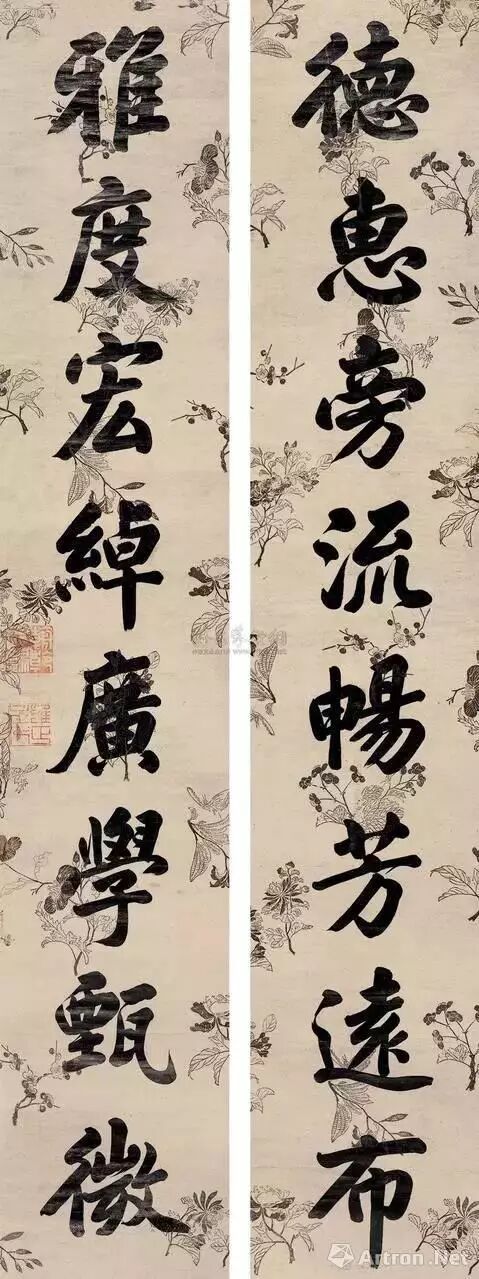 德惠旁流暢芳遠布
雅度宏綽廣學甄微
Artron.Net